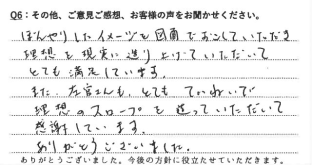 Q6：その他、ご意見ご感想、お客様の声をお聞かせください。
ぼんやりしたイメージを図面でおこしていただき
理想を現実に造り上げていただいて
とても満足しています。
また、左官さんも、とてもていねいで
理想のスロープを造っていただいて
感謝しています。
ありがとうございました。
ありがとうございました。今後の方針に役立たせていただきます。